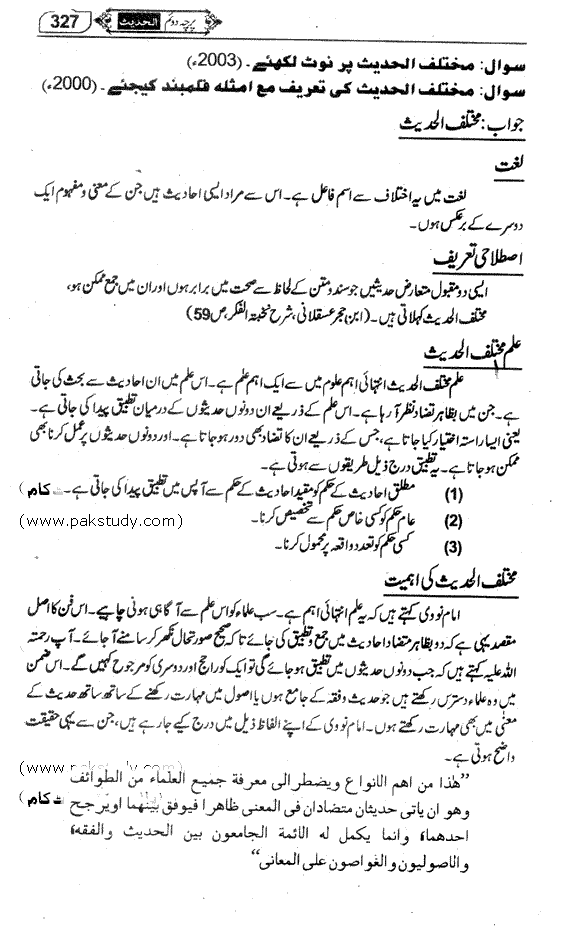 327 الحدیث پرچہ دوئم
سوال: مختلف الحدیث پر نوٹ لکھئے۔ (2003ء)
سوال: مختلف الحدیث کی تعریف مع امثلہ قلمبند کیجئے۔ (2000ء)
جواب: مختلف الحدیث
لغت
لغت میں یہ اختلاف سے اسم فاعل ہے۔ اس سے مراد ایسی احادیث ہیں جن کے معنی و مفہوم ایک
دوسرے کے برعکس ہوں۔
اصطلاحی تعریف
ایسی دو مقبول متعارض حدیثیں جو سند و متن کے لحاظ سے صحت میں برابر ہوں اور ان میں جمع ممکن ہو،
مختلف الحدیث کہلاتی ہیں۔ (ابن حجر عسقلانی، شرح نخبۃ الفکر، ص 59)
علم مختلف الحدیث
علم مختلف الحدیث انتہائی اہم علوم میں سے ایک اہم علم ہے۔ اس علم میں ان احادیث سے بحث کی جاتی
ہے۔ جن میں بظاہر تضاد نظر آ رہا ہے۔ اس علم کے ذریعے ان دونوں حدیثوں کے درمیان تطبیق پیدا کی جاتی ہے۔
یعنی ایسا راستہ اختیار کیا جاتا ہے، جس کے ذریعے ان کا تضاد بھی دور ہو جاتا ہے۔ اور دونوں حدیثوں پر عمل کرنا بھی
ممکن ہو جاتا ہے۔ یہ تطبیق درج ذیل طریقوں سے ہوتی ہے۔
(1) مطلق احادیث کے حکم کو مقید احادیث کے حکم سے آپس میں تطبیق پیدا کی جاتی ہے۔ کام )
(2) عام حکم کو کسی خاص حکم سے تخصیص کرنا۔ (www.pakstudy.com)
(3) کسی حکم کو تعدد واقعہ پر محمول کرنا۔
مختلف الحدیث کی اہمیت
امام نووی کہتے ہیں کہ یہ علم انتہائی اہم ہے۔ سب علماء کو اس علم سے آگاہی ہونی چاہیے۔ اس فن کا اصل
مقصد یہی ہے کہ دو بظاہر متضاد احادیث میں جمع تطبیق کی جائے تاکہ صحیح صورتحال نکھر کر سامنے آ جائے۔ آپ رحمتہ
اللہ علیہ کہتے ہیں کہ جب دونوں حدیثوں میں تطبیق ہو جائے گی تو ایک کو راجح اور دوسری کو مرجوح کہیں گے۔ اس ضمن
میں وہ علماء دسترس رکھتے ہیں جو حدیث و فقہ کے جامع ہوں یا اصول میں مہارت رکھنے کے ساتھ ساتھ حدیث کے
معنی میں بھی مہارت رکھتے ہوں۔ امام نووی کے اپنے الفاظ ذیل میں درج کیے جا رہے ہیں، جن سے یہی حقیقت
واضح ہوتی ہے۔
(www.pakstudy.com)
”ھٰذا من اھم الانواع ویضطر الی معرفة جمیع العلماء من الطوائف
وھو ان یاتی حدیثان متضادان فی المعنی ظاھرا فیوفق بینھما اویرجح کام )
احدھما، وانما یکمل لہ الائمة الجامعون بین الحدیث والفقہ،
والاصولیون والغواصون علی المعانی“